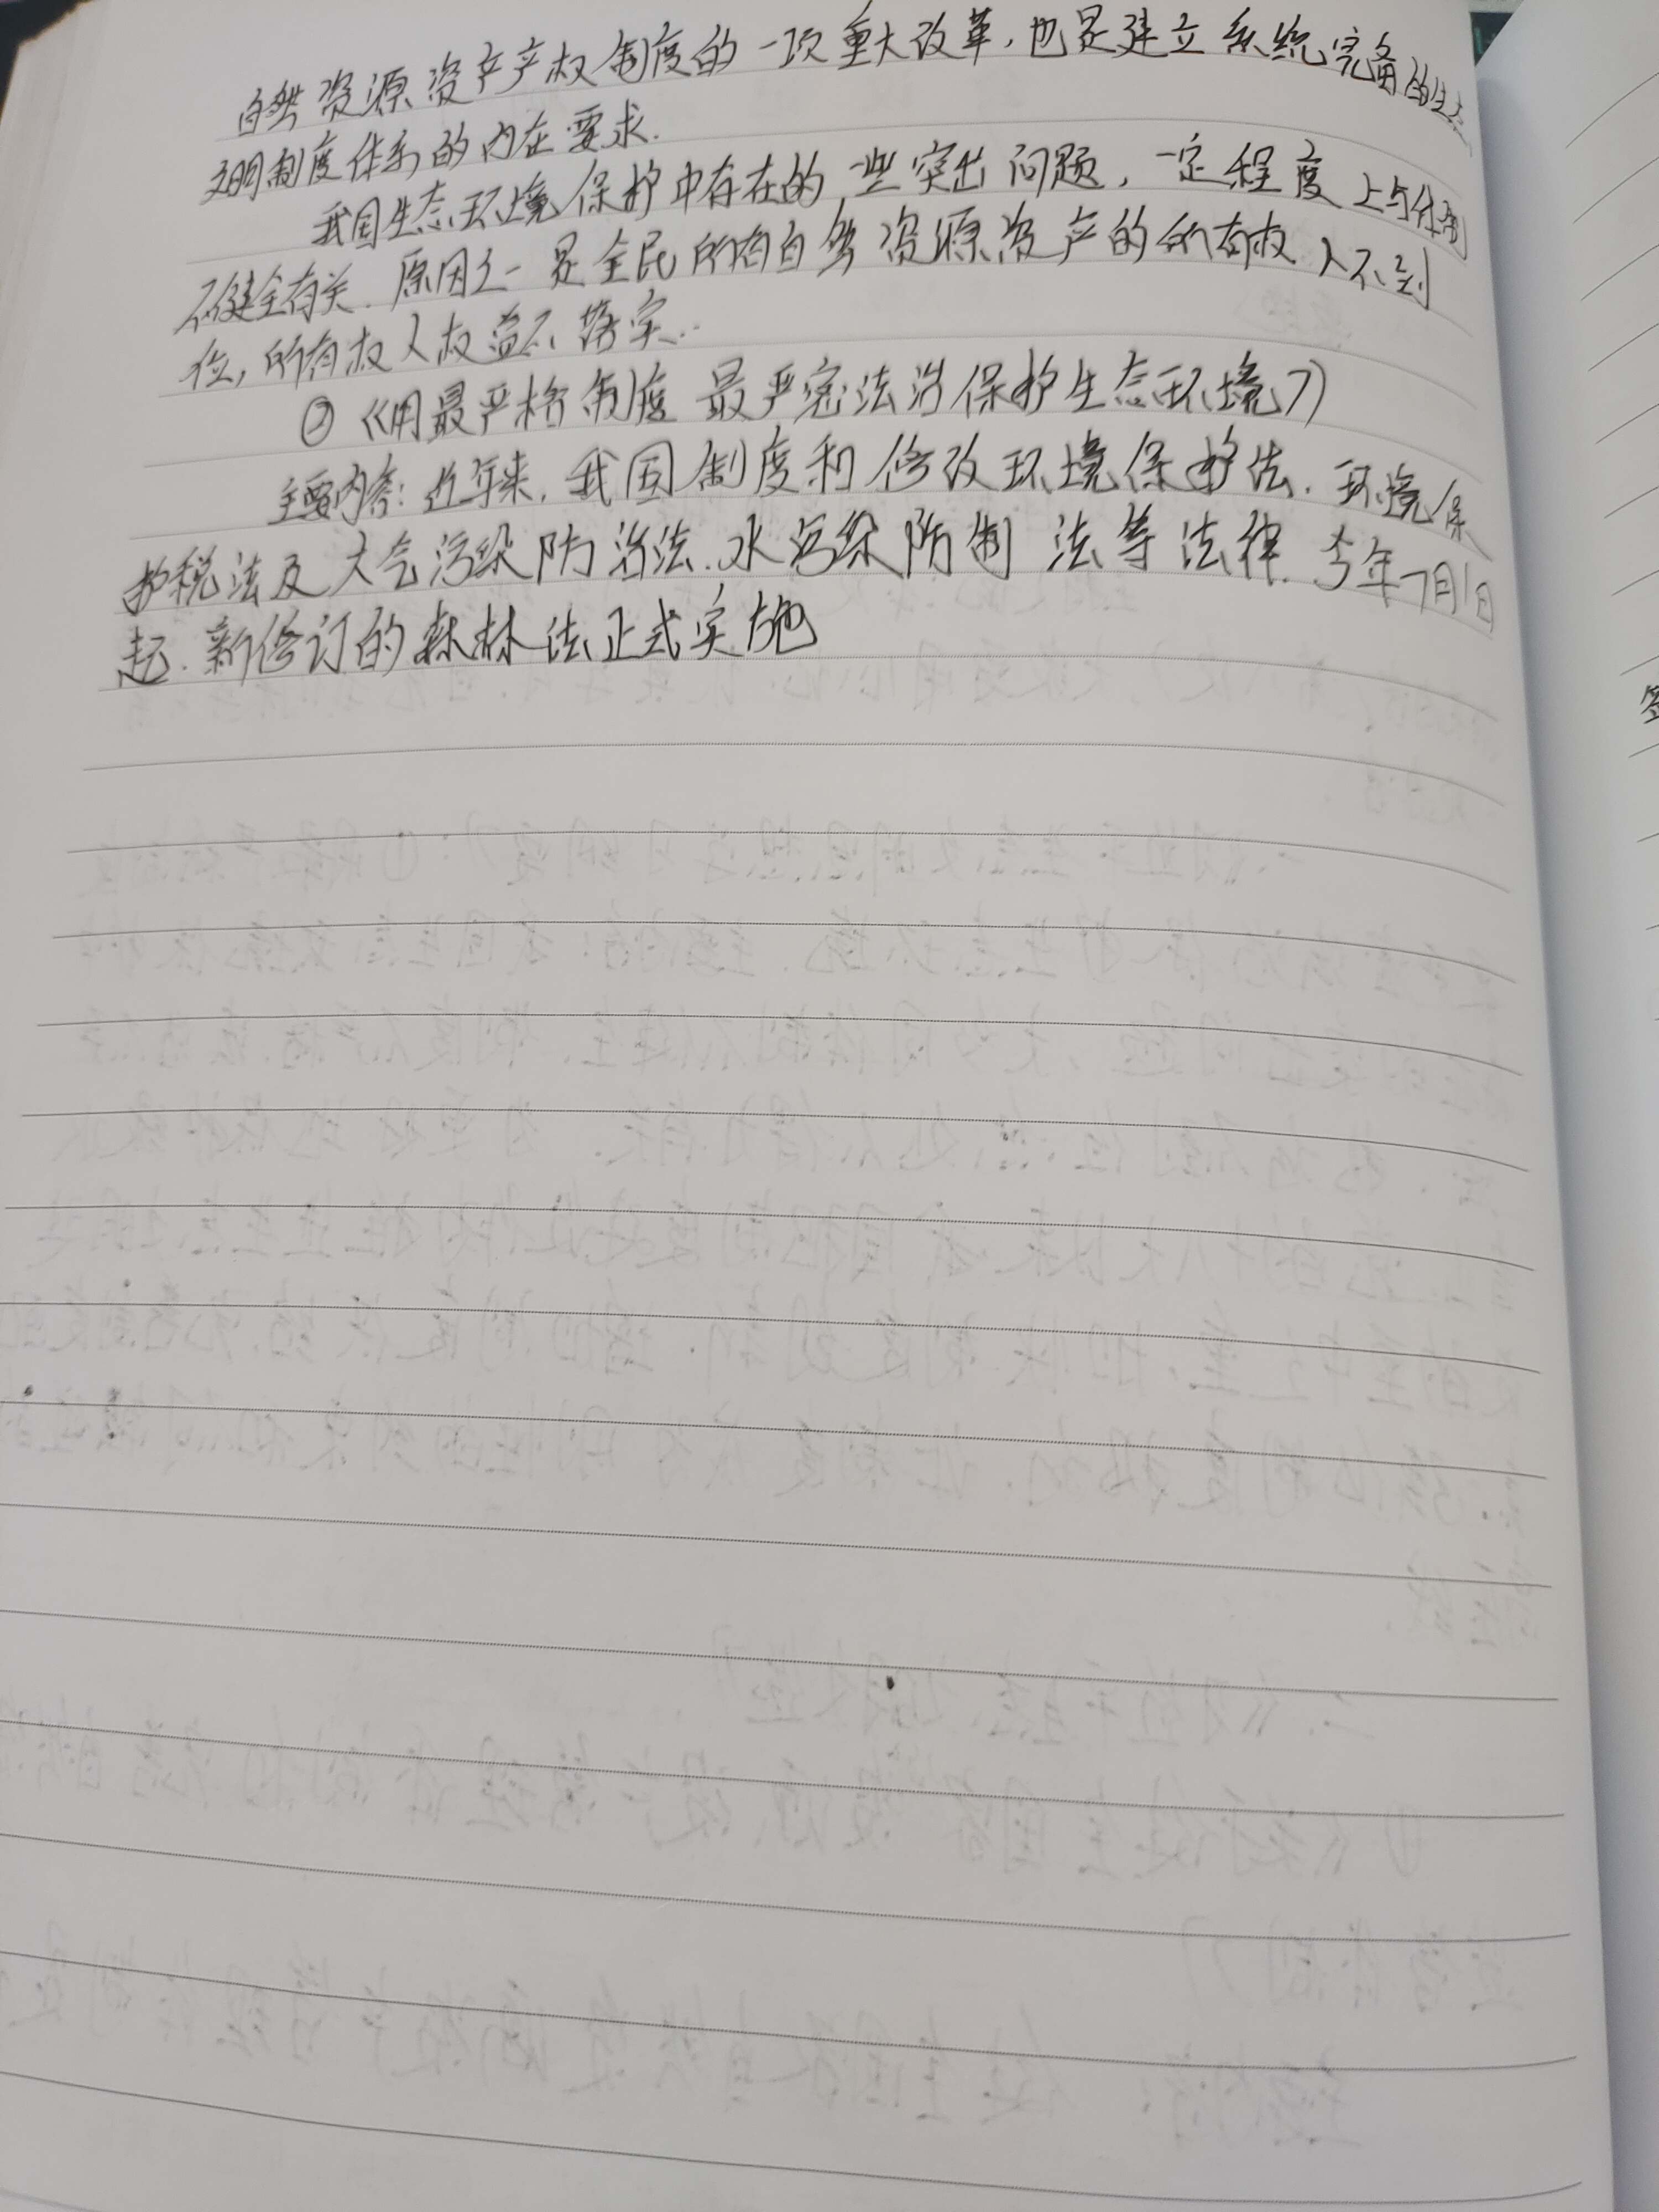 自然资源资产产权制度的一项重大改革,也是建立系统完备的生态
文明制度体系的内在要求.
我国生态环境保护中存在的一些突出问题,一定程度上与体制
不健全有关.原因之一是全民所有自然资源资产的所有权人不到
位,所有权人权益不落实.
② 《用最严格制度 最严密法治保护生态环境》
主要内容:近年来,我国制度和修改环境保护法.环境保
护税法及大气污染防治法.水污染防制法等法律.今年7月1日
起.新修订的森林法正式实施